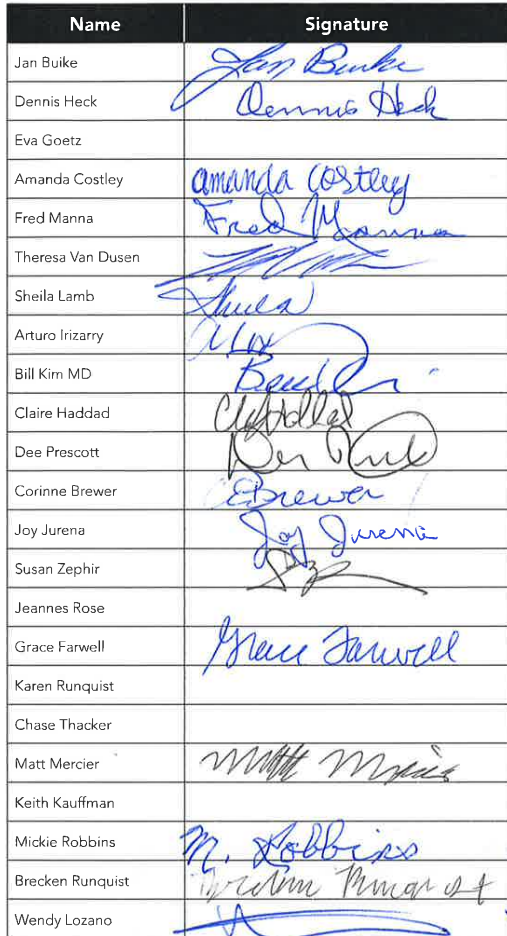 Name Signature
Jan Buike Jan Buike
Dennis Heck Dennis Heck
Eva Goetz
Amanda Costley Amanda Costley
Fred Manna Fred Manna
Theresa Van Dusen
Sheila Lamb Sheila
Arturo Irizarry
Bill Kim MD
Claire Haddad
Dee Prescott Dee
Corinne Brewer CBrewer
Joy Jurena Joy Jurena
Susan Zephir
Jeannes Rose
Grace Farwell Grace Farwell
Karen Runquist
Chase Thacker
Matt Mercier Matt Mercier
Keith Kauffman
Mickie Robbins M. Robbins
Brecken Runquist Brecken Runquist
Wendy Lozano